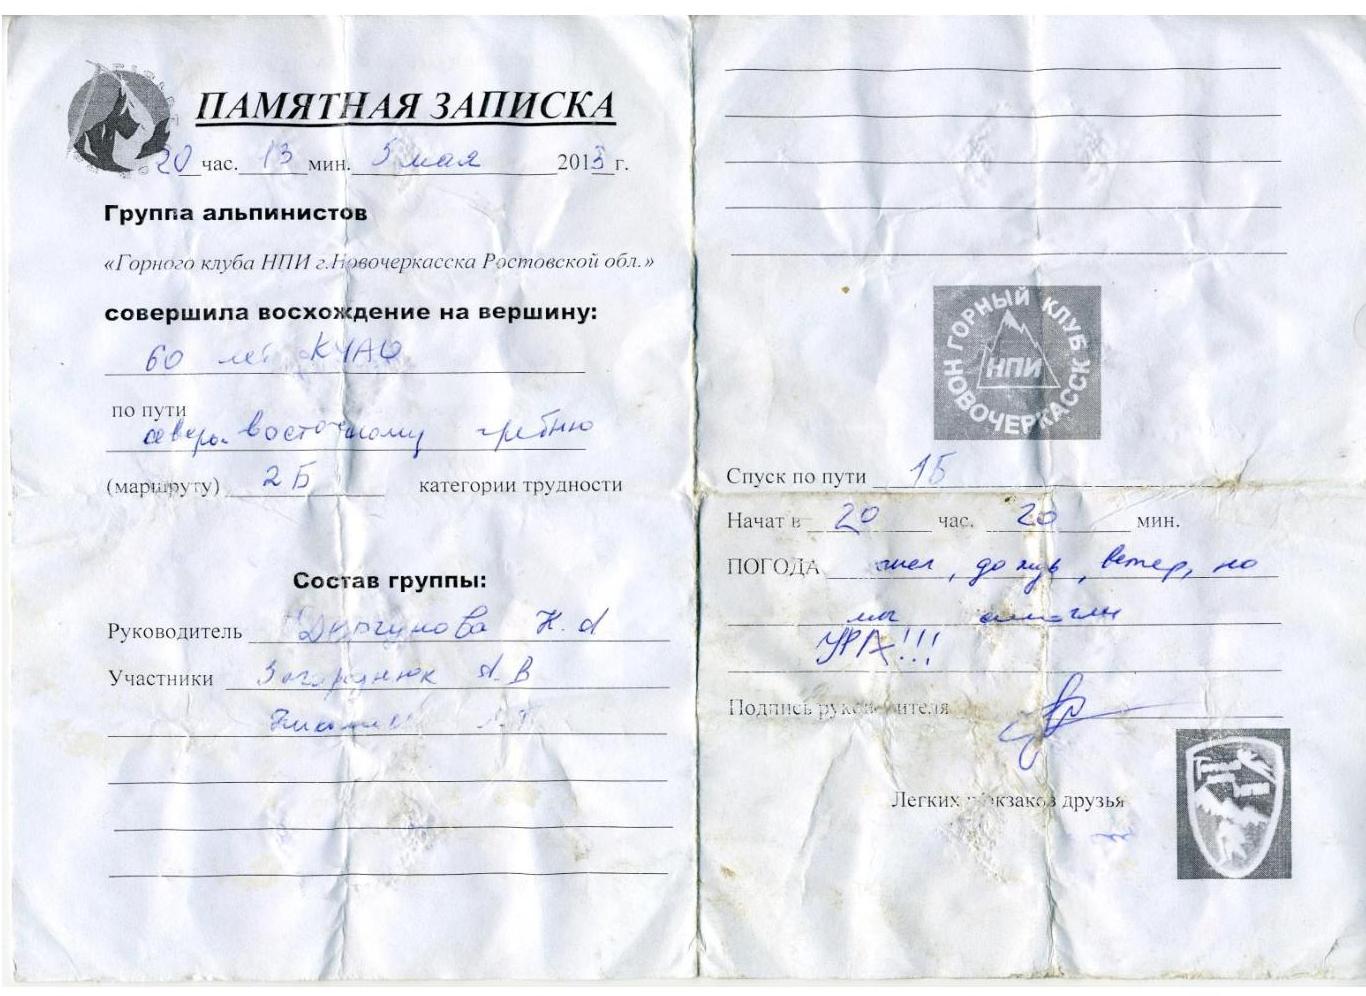 ПАМЯТНАЯ ЗАПИСКА
20 час. 13 мин. 5 мая 2013 г.
Группа альпинистов
«Горного клуба НПИ г.Новочеркасска Ростовской обл.»
совершила восхождение на вершину:
60 лет КЧАО
по пути
северо восточному гребню
(маршруту) 2Б категории трудности
Состав группы:
Руководитель Н. А
Участники А. В
ГОРНЫЙ КЛУБ
НПИ
НОВОЧЕРКАССК
Спуск по пути 1Б
Начат в 20 час. 20 мин.
ПОГОДА шел, дождь, ветер, но
мы смогли
УРА!!!
Подпись руководителя
Легких рюкзаков друзья